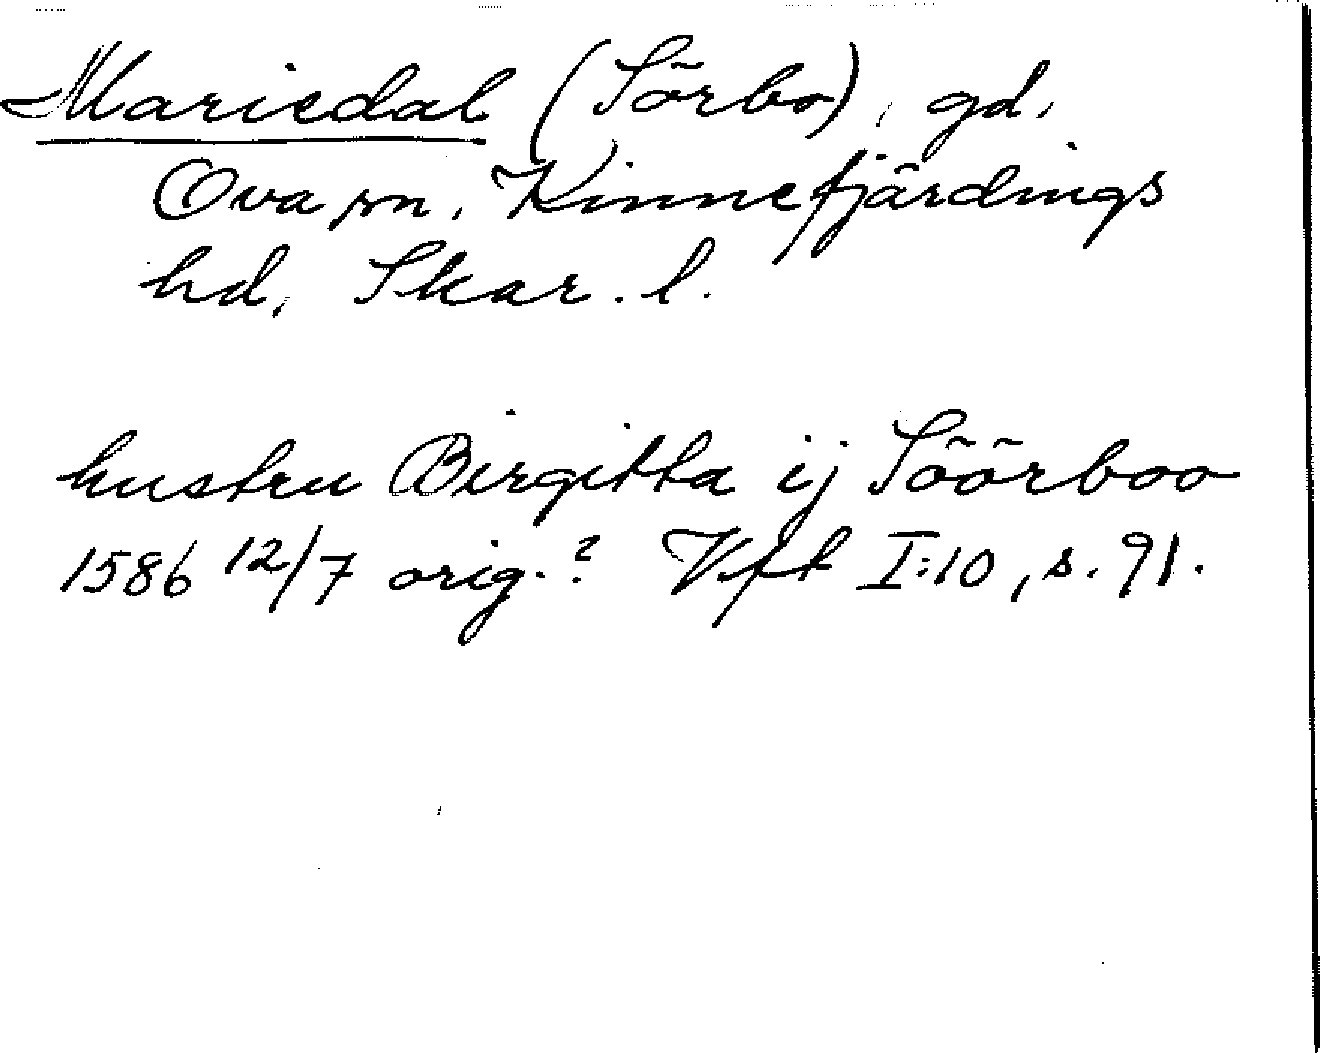 Mariedal (Sörbo), gd,
Ova sn, Kinnefjärdings
hd, Skar. l.
hustru Birgitta ij Söörboo
1586 12/7 orig.? Vft I:10, s. 91.